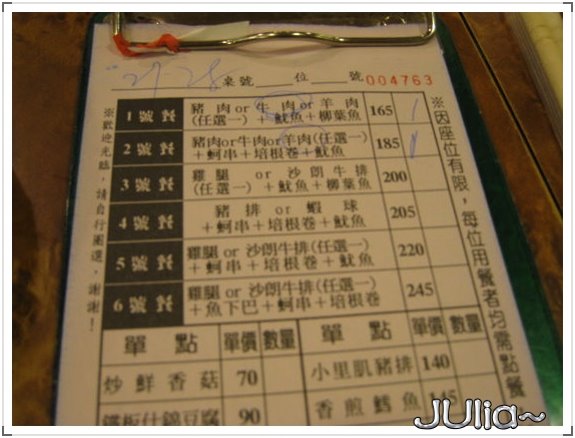 27-28 桌號 位 號 004763
※歡迎光臨，請自行圈選，謝謝！
1 號餐 豬肉or牛肉or羊肉(任選一)＋魷魚＋柳葉魚 165 1
2 號餐 豬肉or牛肉or羊肉(任選一)＋蚵串＋培根卷＋魷魚 185 1
3 號餐 雞腿 or 沙朗牛排(任選一)＋魷魚＋柳葉魚 200
4 號餐 豬排 or 蝦球＋蚵串＋培根卷＋魷魚 205
5 號餐 雞腿 or 沙朗牛排(任選一)＋蚵串＋培根卷＋魷魚 220
6 號餐 雞腿 or 沙朗牛排(任選一)＋魚下巴＋蚵串＋培根卷 245
※因座位有限，每位用餐者均需點餐
單點 單價 數量 單點 單價 數量
炒鮮香菇 70 小里肌豬排 140
鐵板什錦豆腐 90 香煎鱈魚 145
JUlia~